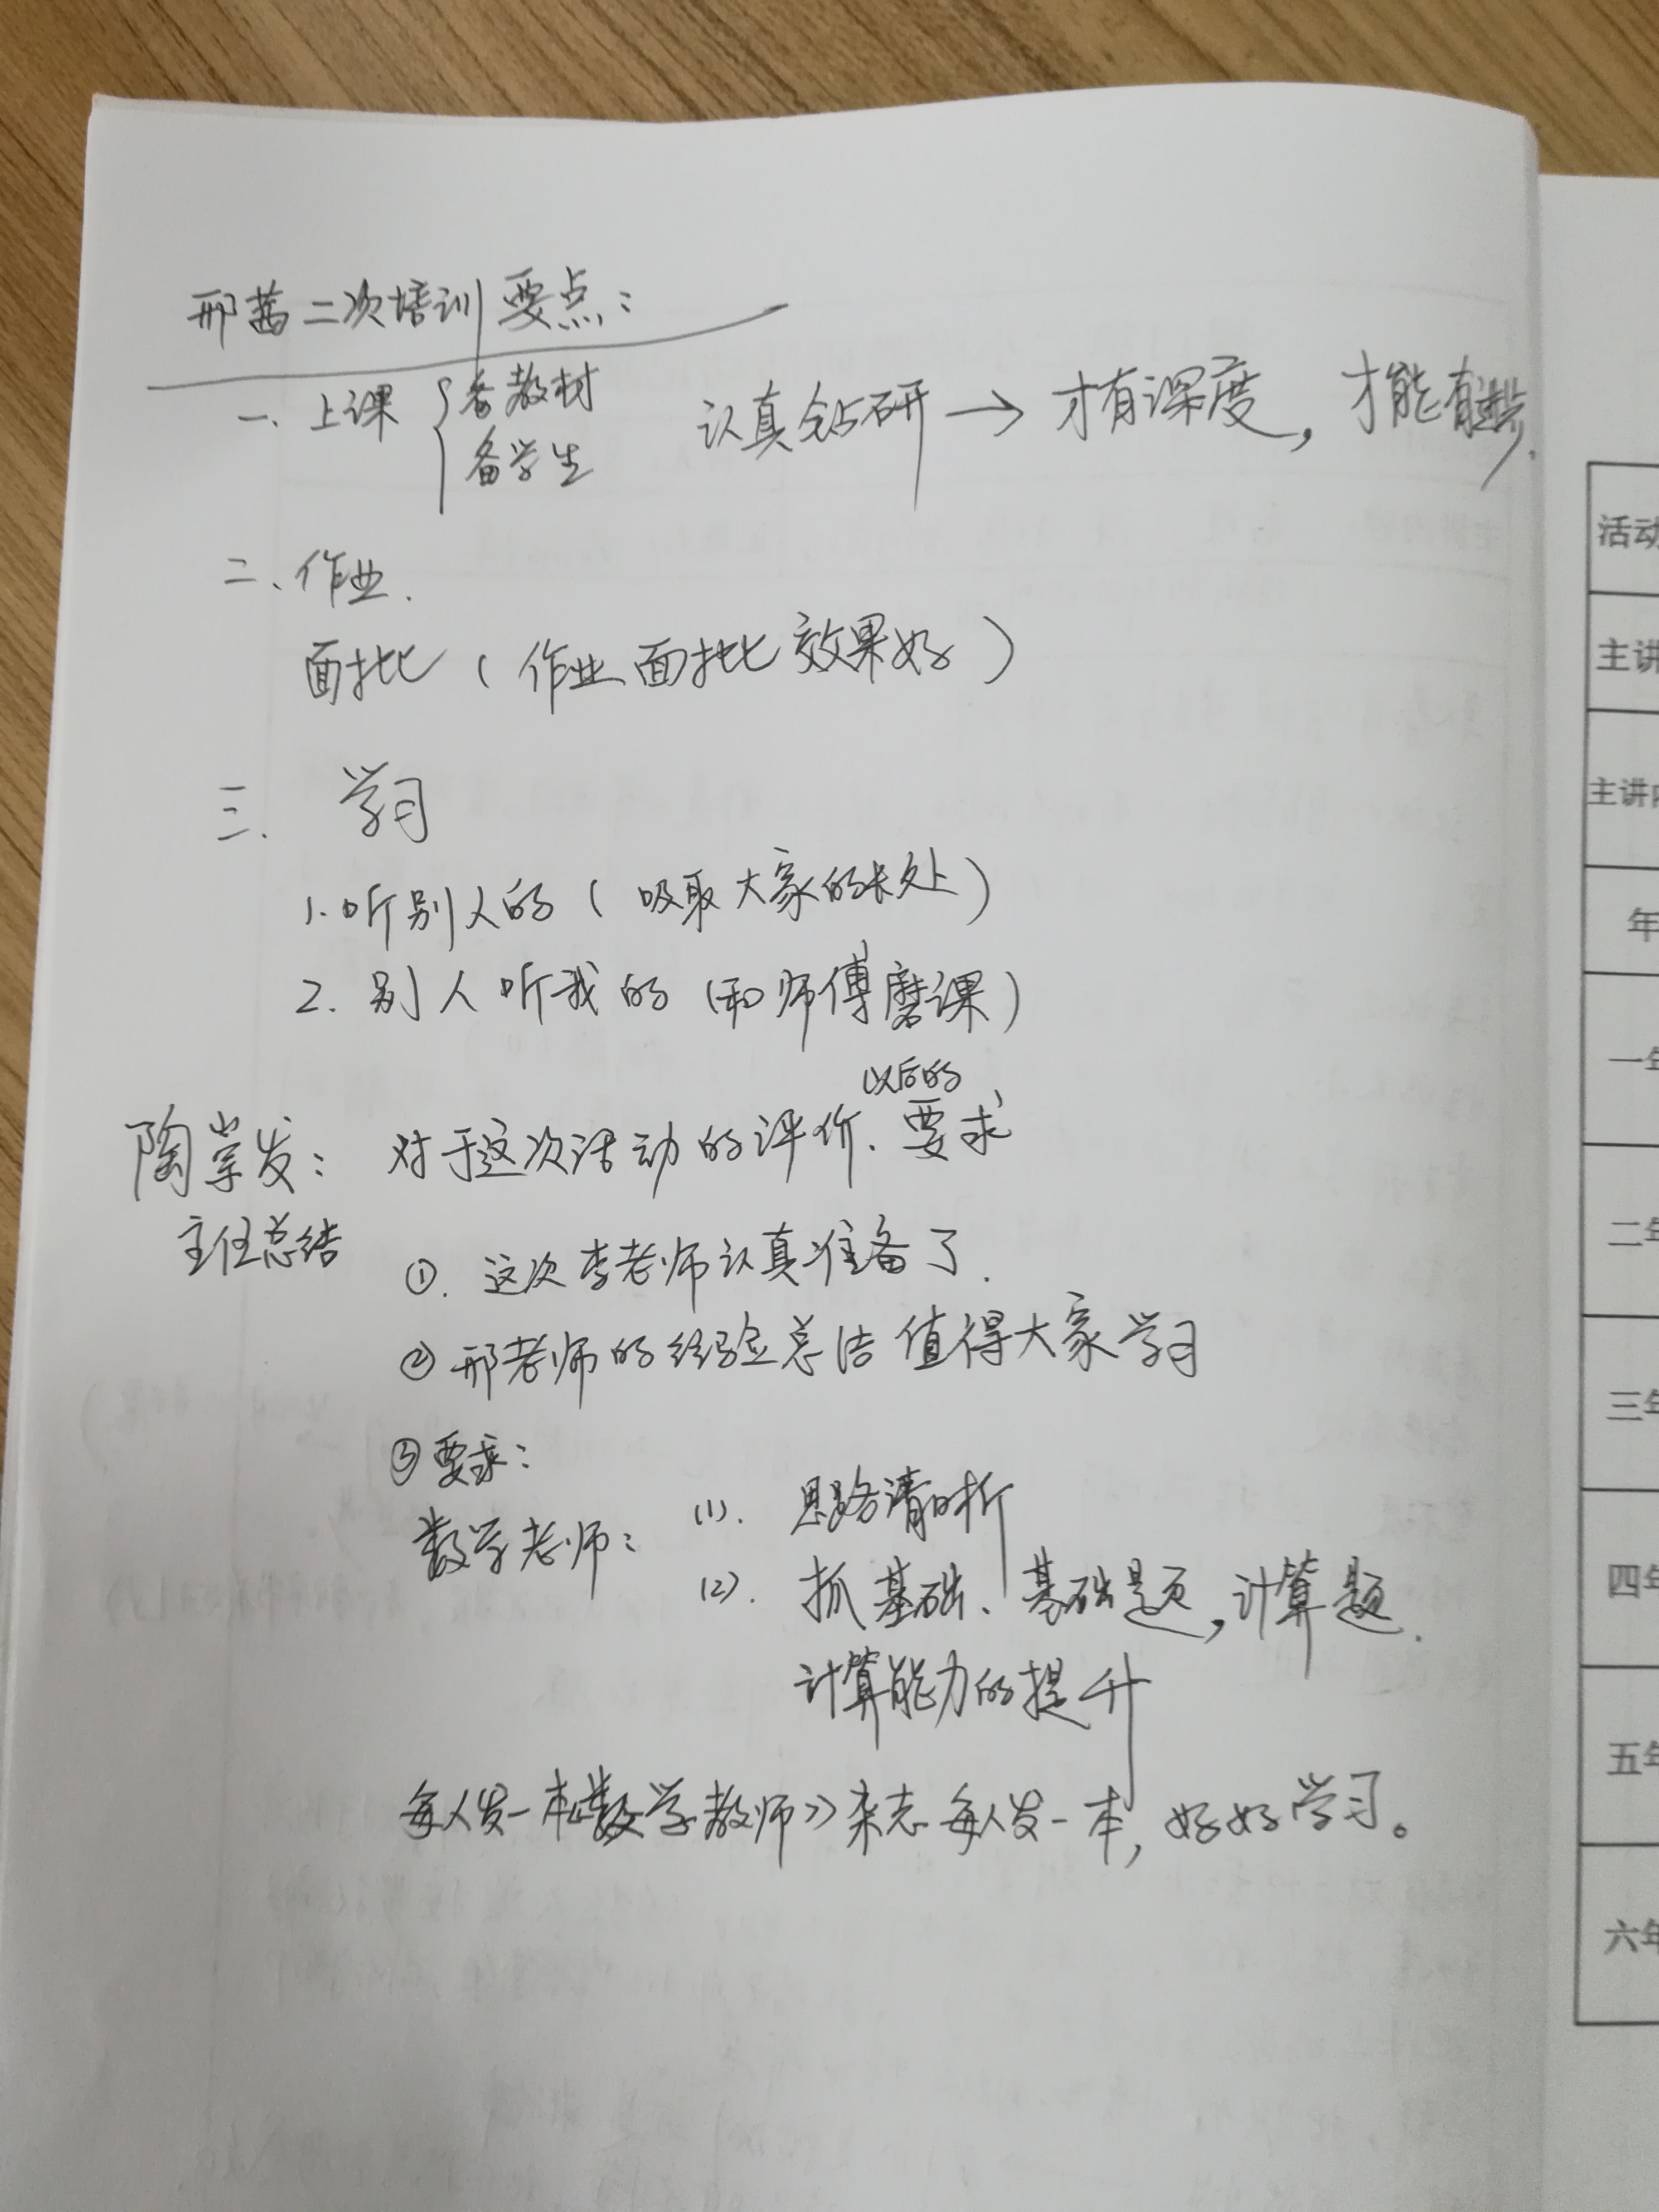 邢茜二次培训要点:
一、上课 { 备教材 认真钻研 → 才有深度, 才能有进步.
备学生
二、作业.
面批 ( 作业面批效果好 )
三. 学习
1. 听别人的 ( 吸取大家的长处 )
2. 别人听我的 (和师傅磨课)
以后的
陶崇发: 对于这次活动的评价、要求
主任总结
①. 这次李老师认真准备了.
② 邢老师的经验总结值得大家学习
③ 要求:
数学老师: (1). 思路清晰
(2). 抓基础、基础题, 计算题.
计算能力的提升
每人发一本《数学教师》杂志每人发一本, 好好学习。
活动
主讲
主讲内
年
一年
二年
三年
四年
五年
六年